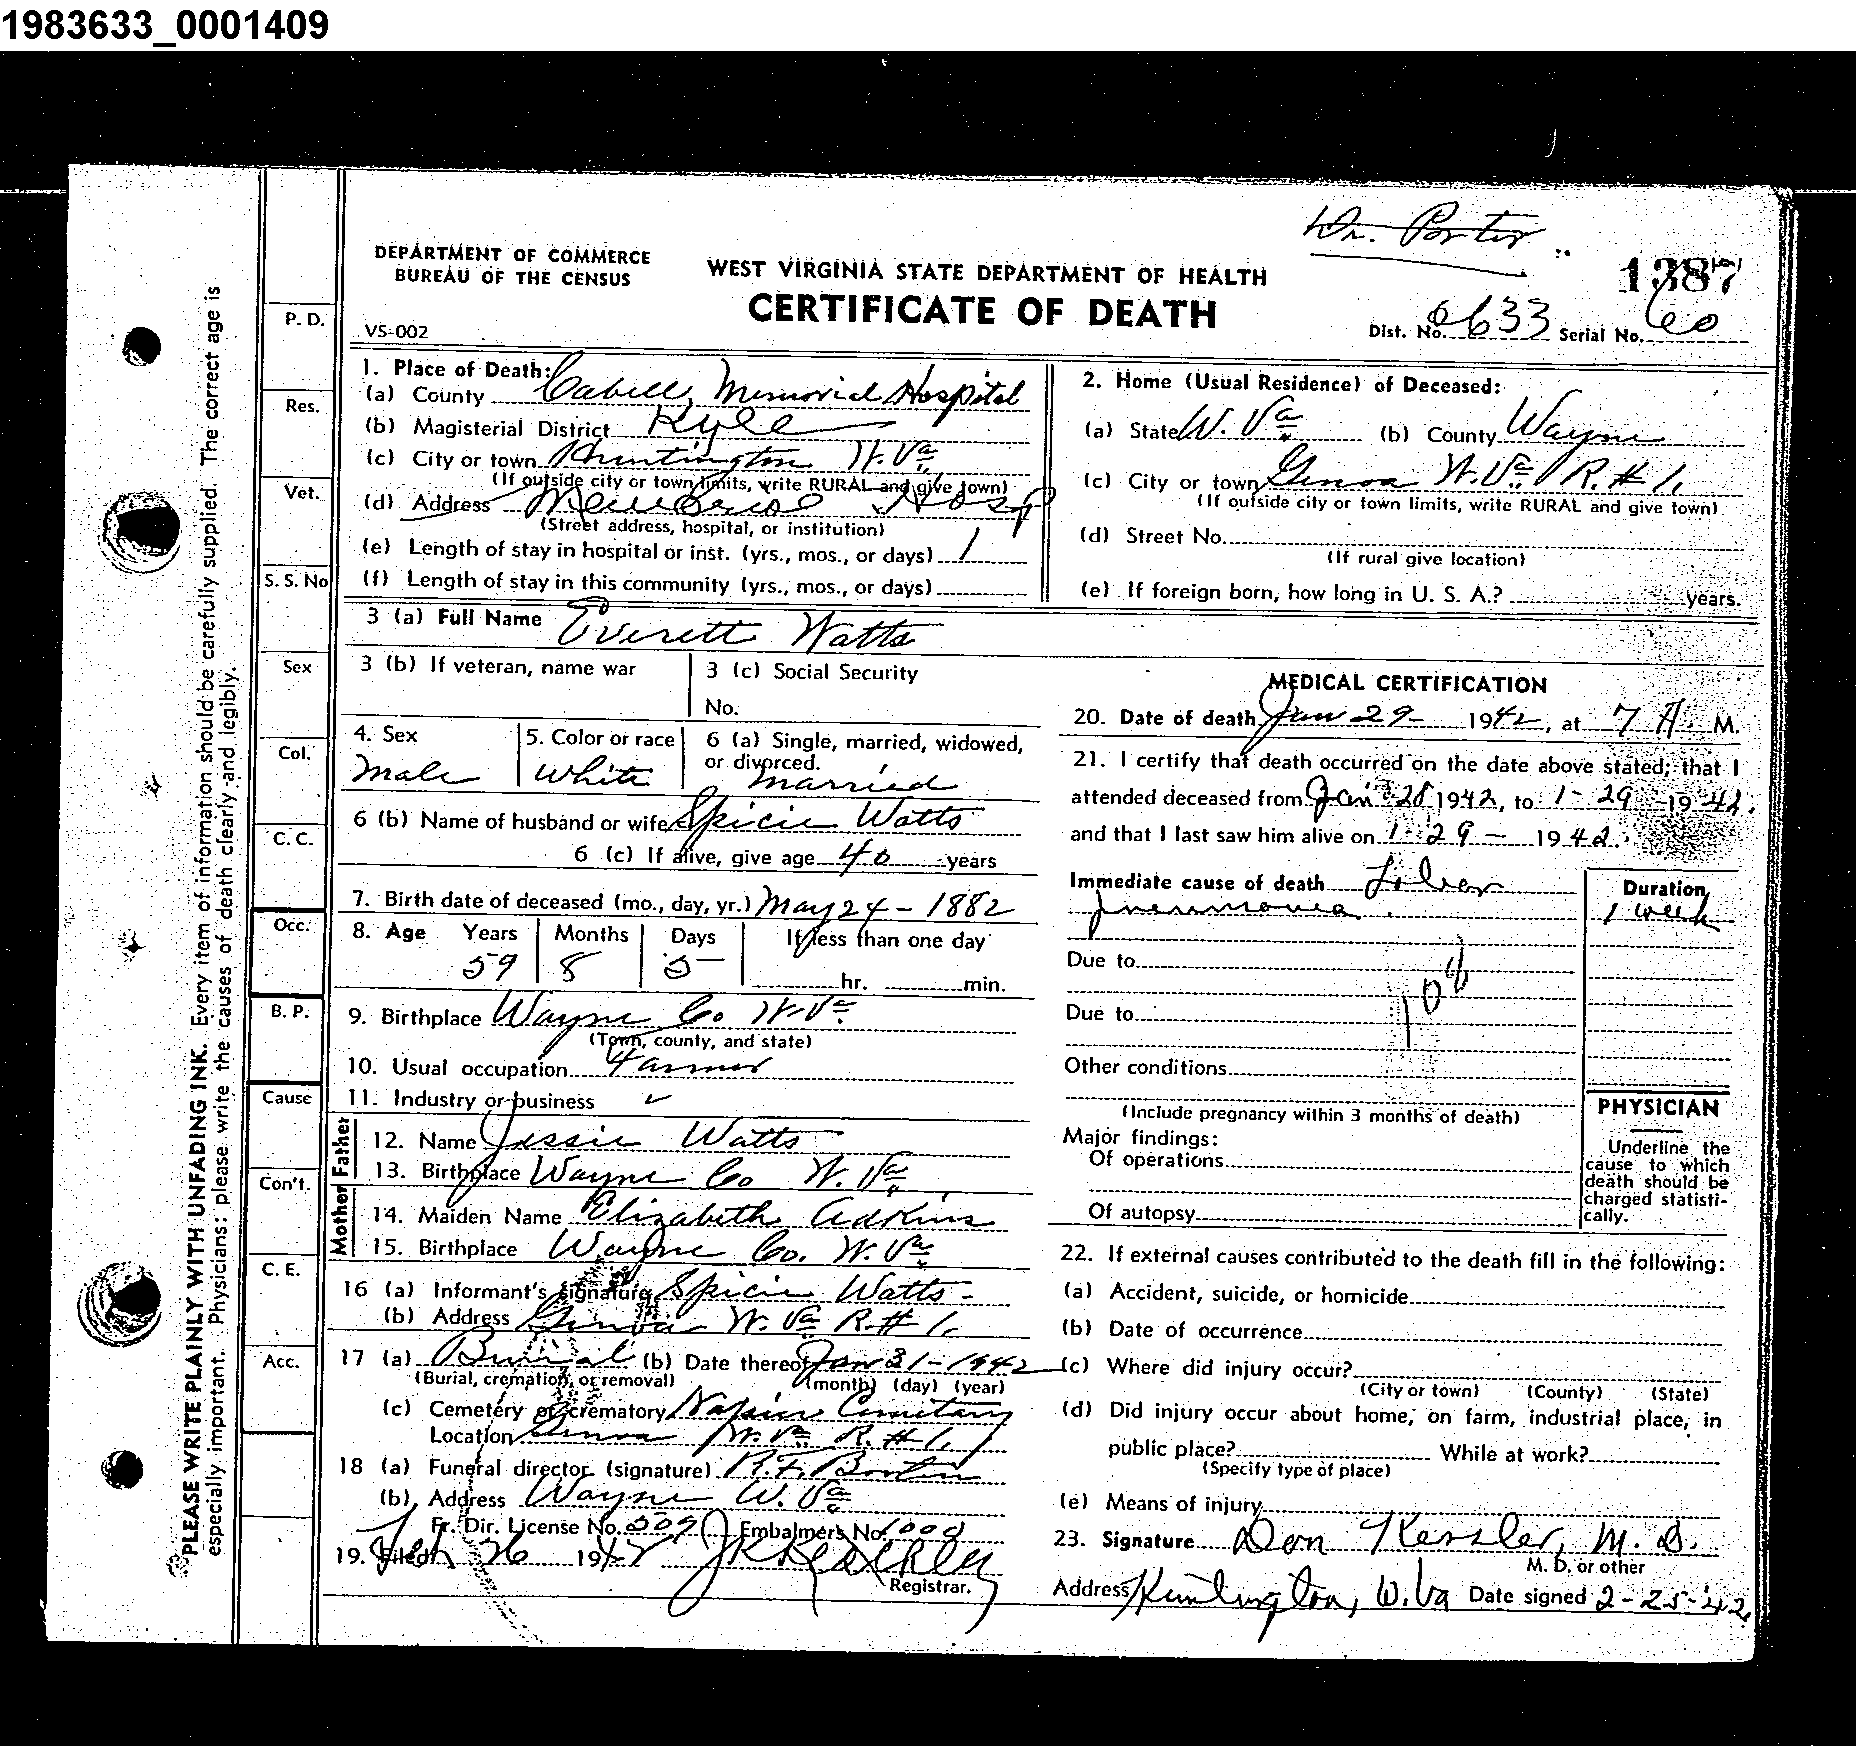 1983633_0001409
Dr. Porter
DEPARTMENT OF COMMERCE
BUREAU OF THE CENSUS
WEST VIRGINIA STATE DEPARTMENT OF HEALTH
1387
CERTIFICATE OF DEATH
VS-002
Dist. No. 0633 Serial No. 60
1. Place of Death:
(a) County Cabell, Memorial Hospital
(b) Magisterial District Kyle
(c) City or town Huntington W.Va.
(If outside city or town limits, write RURAL and give town)
(d) Address Memorial Hosp
(Street address, hospital, or institution)
(e) Length of stay in hospital or inst. (yrs., mos., or days) 1
(f) Length of stay in this community (yrs., mos., or days)
2. Home (Usual Residence) of Deceased:
(a) State W. Va. (b) County Wayne
(c) City or town Genoa W.Va. R.#1.
(If outside city or town limits, write RURAL and give town)
(d) Street No.
(If rural give location)
(e) If foreign born, how long in U. S. A.? years.
3 (a) Full Name Everett Watts
3 (b) If veteran, name war
3 (c) Social Security
No.
4. Sex
Male
5. Color or race
White
6 (a) Single, married, widowed,
or divorced.
Married
6 (b) Name of husband or wife Spicie Watts
6 (c) If alive, give age 40 years
7. Birth date of deceased (mo., day, yr.) May 24 - 1882
8. Age Years Months Days If less than one day
59 8 5 hr. min.
9. Birthplace Wayne Co W.Va.
(Town, county, and state)
10. Usual occupation Farmer
11. Industry or business ✓
Father
12. Name Jessie Watts
13. Birthplace Wayne Co W. Va.
Mother
14. Maiden Name Elizabeth Adkins
15. Birthplace Wayne Co. W.Va.
16 (a) Informant's signature Spicie Watts-
(b) Address Genoa W. Va R.#1.
17 (a) Burial (b) Date thereof Jan 31-1942
(Burial, cremation, or removal) (month) (day) (year)
(c) Cemetery or crematory Napier Cemetary
Location Genoa W. Va. R.#1.
18 (a) Funeral director (signature)
(b) Address Wayne W. Va
Fr. Dir. License No. 509 Embalmer's No. 1009
19. Filed Feb 26 1942
Registrar.
MEDICAL CERTIFICATION
20. Date of death Jan 29- 1942, at 7 A. M.
21. I certify that death occurred on the date above stated; that I
attended deceased from Jan 28 1942, to 1-29 1942.
and that I last saw him alive on 1-29- 1942.
Immediate cause of death Lobar
pneumonia.
Duration
1 week
Due to
108
Due to
Other conditions
(Include pregnancy within 3 months of death)
Major findings:
Of operations
Of autopsy
PHYSICIAN
Underline the
cause to which
death should be
charged statisti-
cally.
22. If external causes contributed to the death fill in the following:
(a) Accident, suicide, or homicide
(b) Date of occurrence
(c) Where did injury occur?
(City or town) (County) (State)
(d) Did injury occur about home, on farm, industrial place, in
public place? While at work?
(Specify type of place)
(e) Means of injury
23. Signature Don Kessler, M. D.
M. D. or other
Address Huntington, W.Va Date signed 2-25-42.
PLEASE WRITE PLAINLY WITH UNFADING INK. Every item of information should be carefully supplied. The correct age is
especially important. Physicians: please write the causes of death clearly and legibly.
P. D.
Res.
Vet.
S. S. No
Sex
Col.
C. C.
Occ.
B. P.
Cause
Con't.
C. E.
Acc.